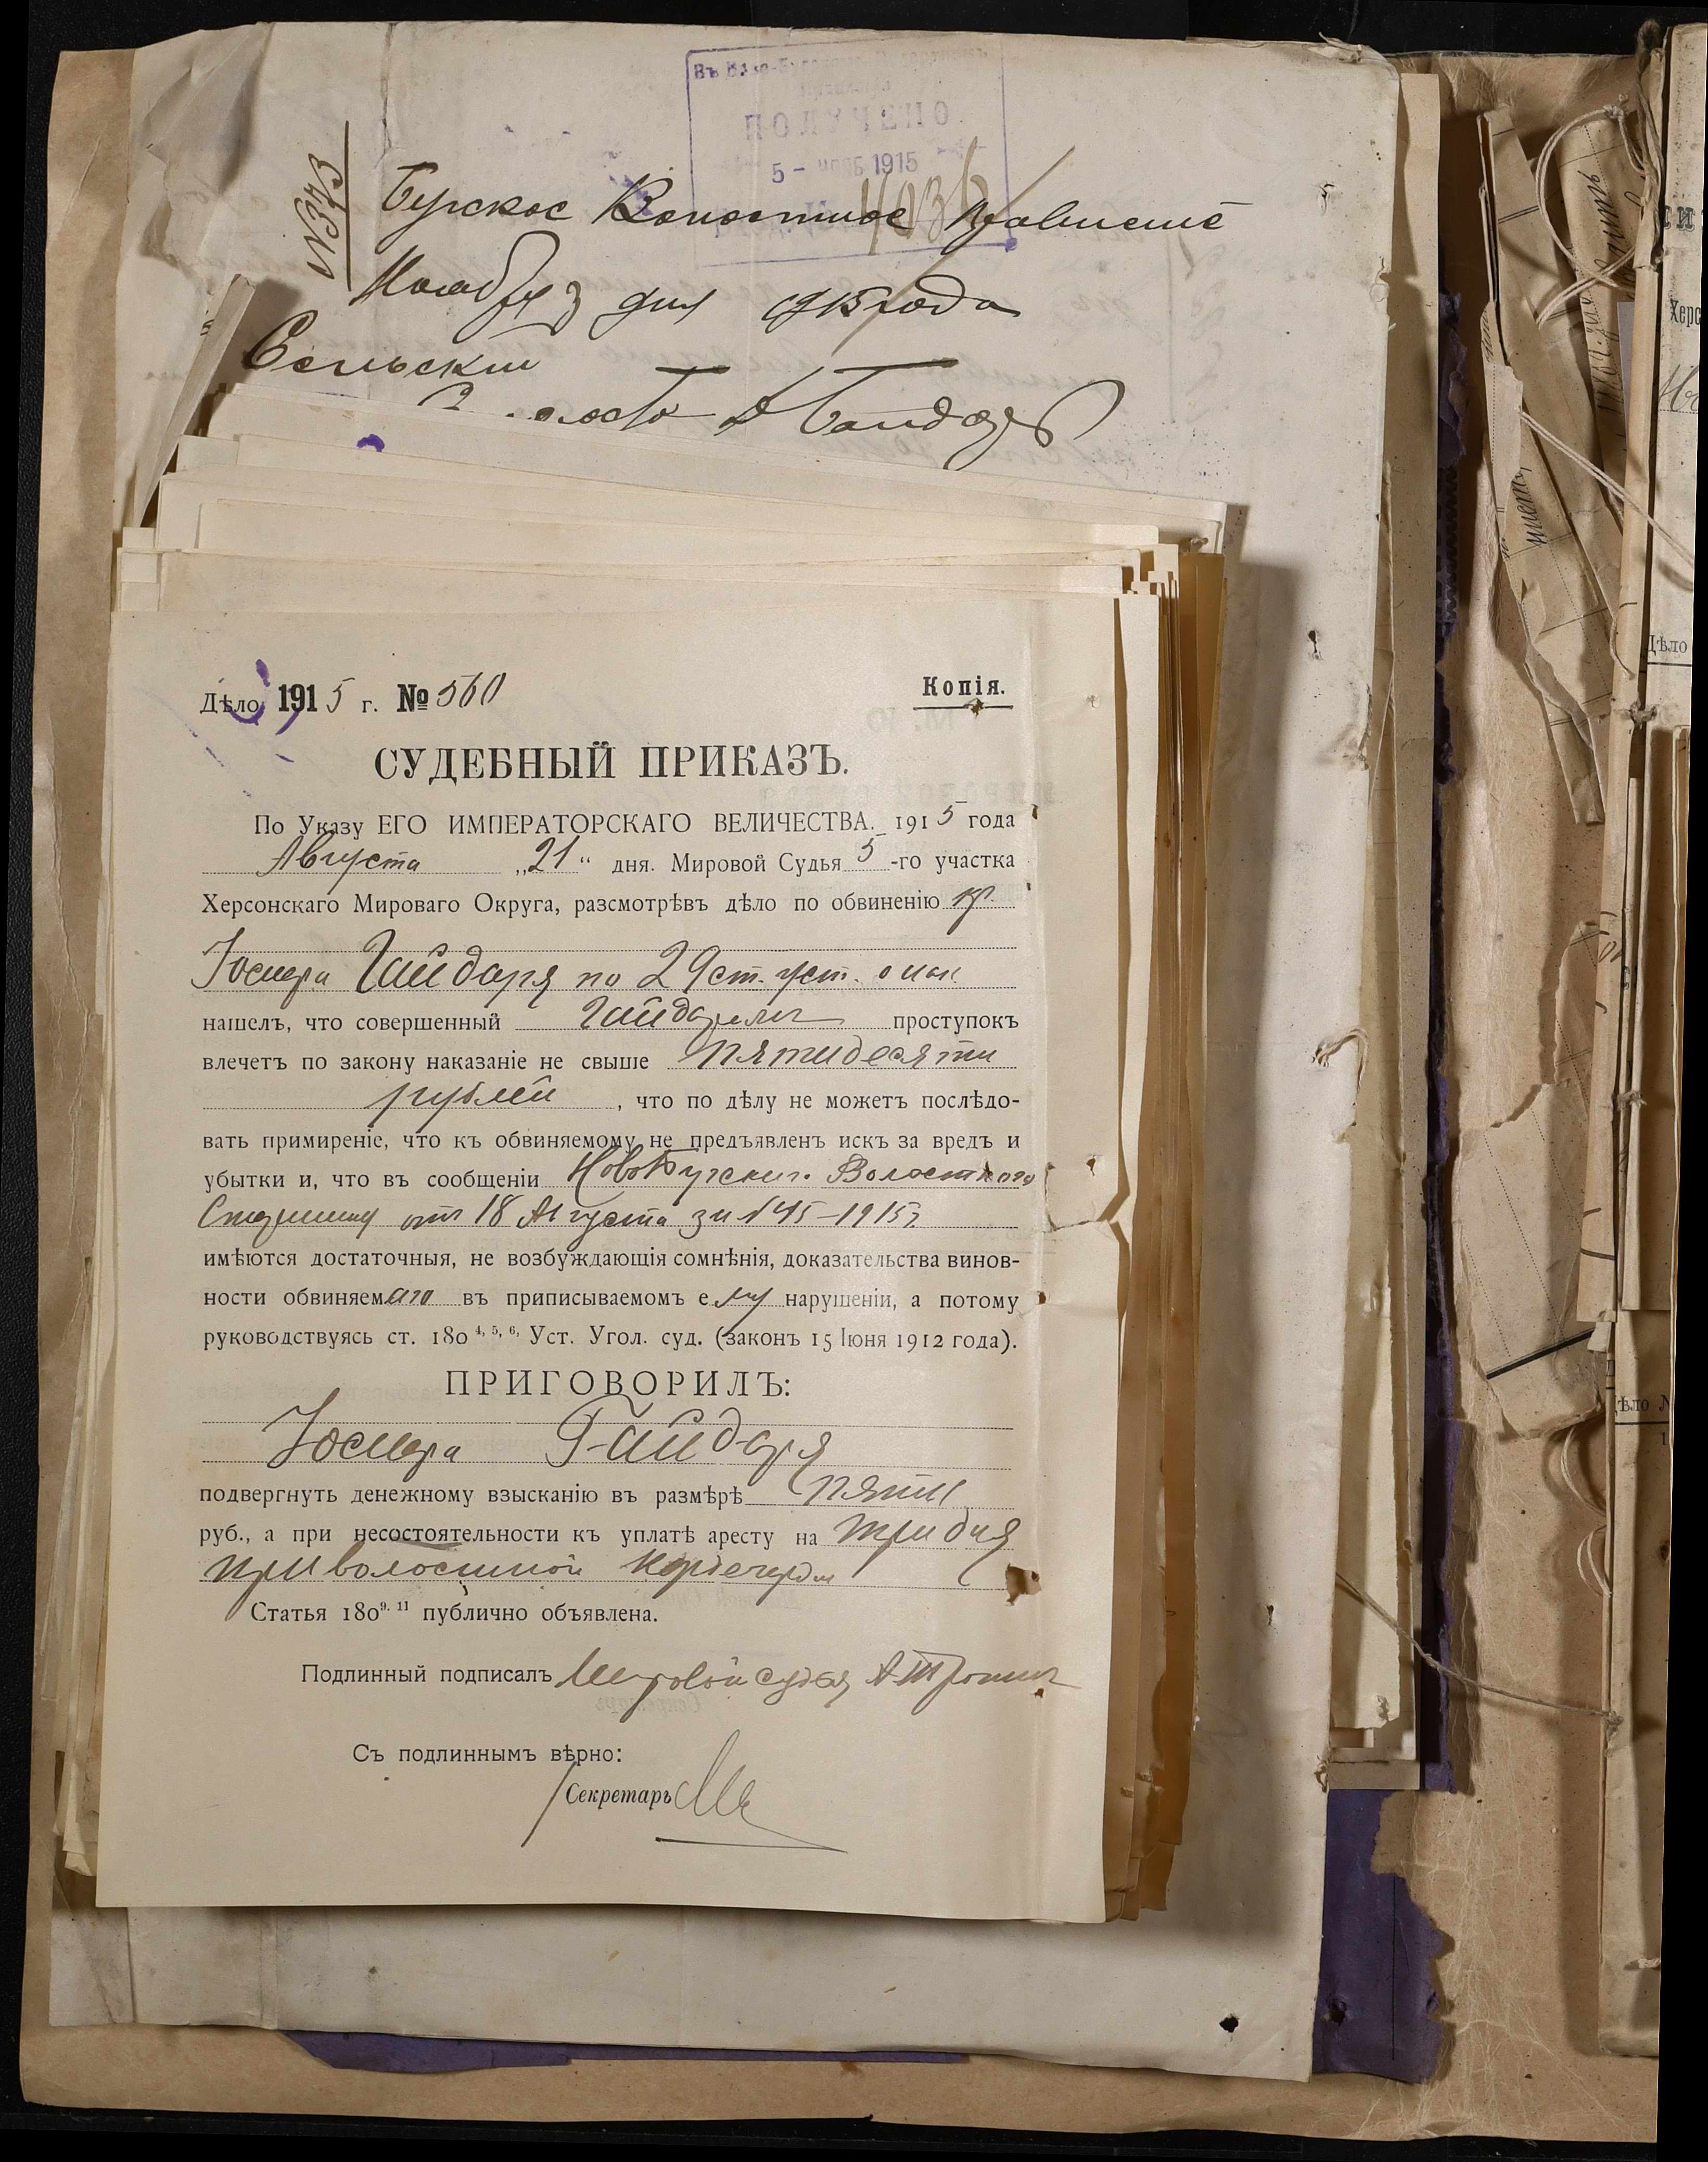 ПОЛУЧЕНО
5 - НОЯБ 1915
№373
Бугское Волостное Правление
Ноября 3 дня 1915 года
Сельский
Дѣло 1915 г. № 560
Копія.
СУДЕБНЫЙ ПРИКАЗЪ.
По Указу ЕГО ИМПЕРАТОРСКАГО ВЕЛИЧЕСТВА. 1915 года
Августа „21“ дня. Мировой Судья 5-го участка
Херсонскаго Мироваго Округа, разсмотрѣвъ дѣло по обвиненію кр.
Гайдаря по 29 ст. уст. о нак.
нашелъ, что совершенный Гайдаремъ проступокъ
влечетъ по закону наказаніе не свыше пятидесяти
рублей, что по дѣлу не можетъ послѣдо-
вать примиреніе, что къ обвиняемому не предъявленъ искъ за вредъ и
убытки и, что въ сообщеніи Ново Бугскаго Волостного
Старшины отъ 18 Августа за №45-1915 г.
имѣются достаточныя, не возбуждающія сомнѣнія, доказательства винов-
ности обвиняемаго въ приписываемомъ ему нарушеніи, а потому
руководствуясь ст. 180 4, 5, 6, Уст. Угол. суд. (законъ 15 Іюня 1912 года).
ПРИГОВОРИЛЪ:
Гайдаря
подвергнуть денежному взысканію въ размѣрѣ пяти
руб., а при несостоятельности къ уплатѣ аресту на три дня
при волостной
Статья 180 9. 11 публично объявлена.
Подлинный подписалъ Мировой Судья
Съ подлиннымъ вѣрно:
Секретарь
Дѣло
Дѣло №